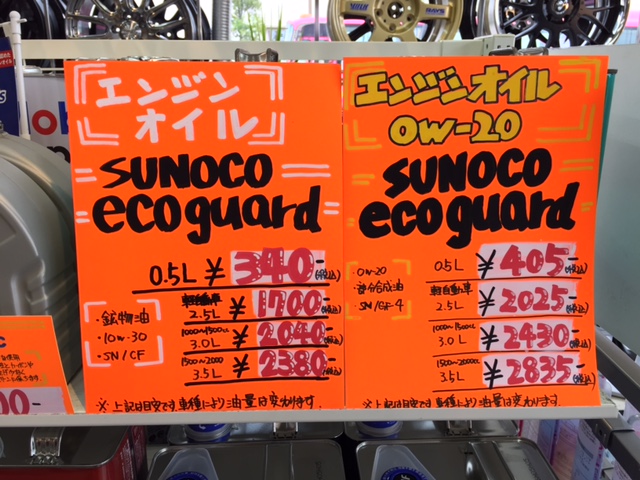 エンジン
オイル
SUNOCO
ecoguard
0.5L ¥340-(税込)
軽自動車
2.5L ¥1700-(税込)
1000~1500cc
3.0L ¥2040-(税込)
1500~2000
3.5L ¥2380-(税込)
・鉱物油
・10w-30
・SN/CF
※上記は目安です車種により油量は変わります.
エンジンオイル
0W-20
SUNOCO
ecoguard
0.5L ¥405-(税込)
軽自動車
2.5L ¥2025-(税込)
1000~1500cc
3.0L ¥2430-(税込)
1500~2000cc
3.5L ¥2835-(税込)
・0W-20
・部分合成油
・SN/GF-4
※上記は目安です車種により油量は変わります.